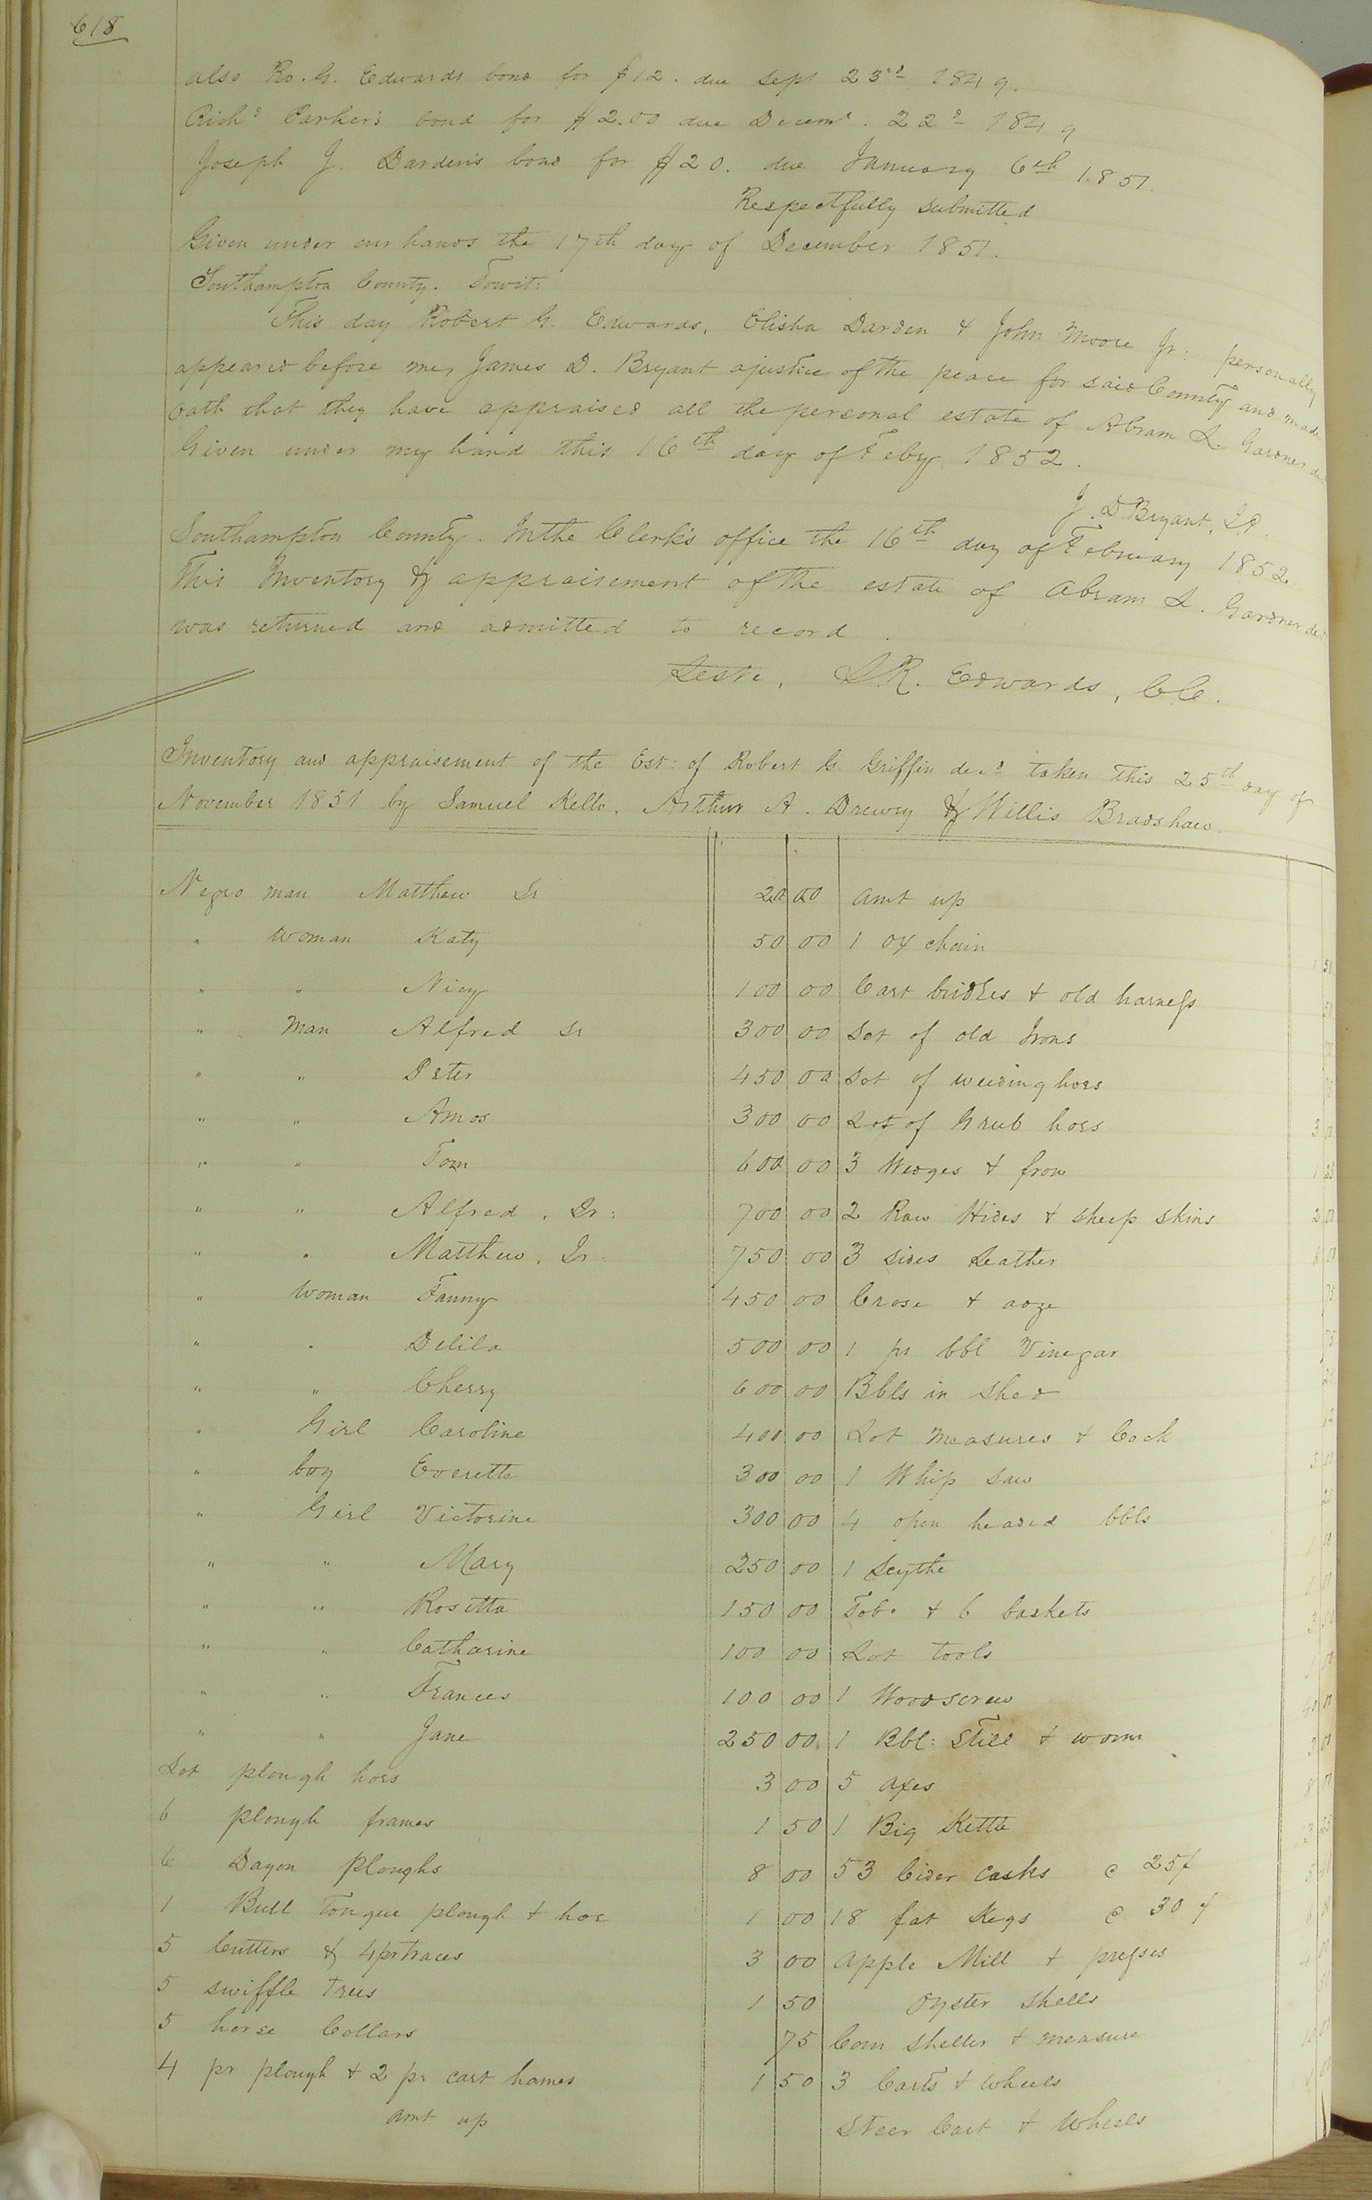 618
also Ro. G. Edwards bond for $12. due Sept 23d 1849.
Richd Parker's bond for $2.00 due Decemr. 22d 1849
Joseph J. Darden's bond for $20. due January 6th 1851.
Respectfully submitted
Given under our hands the 17th day of December 1851.
Southampton County. Towit:
This day Robert G. Edwards, Elisha Darden & John Moore Jr: personally
appeared before me, James D. Bryant a justice of the peace for said County and made
oath that they have appraised all the personal estate of Abram L. Gardner
Given under my hand this 16th day of Feby 1852.
J. D Bryant, J.P.
Southampton County. In the Clerk's office the 16th day of February 1852.
This Inventory & appraisement of the estate of Abram L. Gardner
was returned and admitted to record.
Teste, L.R. Edwards, C.C.
Inventory and appraisement of the Est: of Robert G. Griffin decd taken this 25th day of
November 1851 by Samuel Kello, Arthur A. Drewry & Willis Bradshaw.
Negro man Matthew Sr 20 00
" woman Katy 50 00
" " Nicy 100 00
" man Alfred Sr 300 00
" " Peter 450 00
" " Amos 300 00
" " Tom 600 00
" " Alfred, Jr: 700 00
" " Matthew, Jr: 750 00
" woman Fanny 450 00
" " Delila 500 00
" " Cherry 600 00
" Girl Caroline 400 00
" boy Everette 300 00
" Girl Victorine 300 00
" " Mary 250 00
" " Rosetta 150 00
" " Catharine 100 00
" " Frances 100 00
" " Jane 250 00
Lot plough hoes 3 00
6 plough frames 1 50
6 Dagon ploughs 8 00
1 Bull Tongue plough & hoe 1 00
5 Cutters & 4 pr traces 3 00
5 swiffle trees 1 50
5 horse Collars 75
4 pr plough & 2 pr cart hames 1 50
amt up
amt up
1 ox chain
Cart bridles & old harness
Lot of old Irons
Lot of weeding hoes
Lot of Grub hoes
3 Wedges & frow
2 Raw Hides & sheep skins
3 sides Leather
Crose & adze
1 pr bbl Vinegar
Bbls in shed
Lot measures & Cock
1 Whip saw
4 open headed bbls
1 Scythe
Tobo & 6 baskets
Lot tools
1 Woodscrew
1 Bbl: Still & worm
5 axes
1 Big Kettle
53 Cider casks @ 25¢
18 fat Kegs @ 30¢
Apple Mill & presses
Oyster shells
Corn sheller & measure
3 Carts & wheels
Steer Cart & Wheels